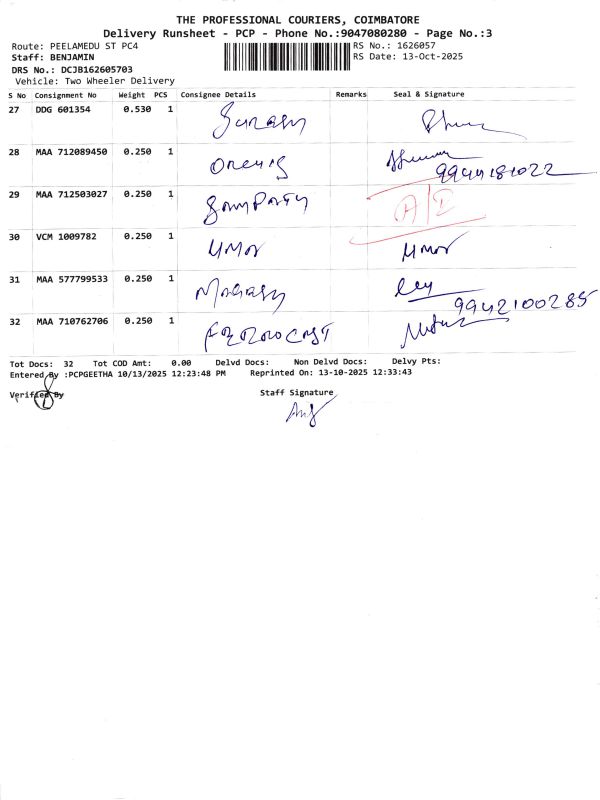 THE PROFESSIONAL COURIERS, COIMBATORE
Delivery Runsheet - PCP - Phone No.:9047080280 - Page No.:3
Route: PEELAMEDU ST PC4
RS No.: 1626057
Staff: BENJAMIN
RS Date: 13-Oct-2025
DRS No.: DCJB162605703
Vehicle: Two Wheeler Delivery
S No Consignment No Weight PCS Consignee Details Remarks Seal & Signature
27 DDG 601354 0.530 1
28 MAA 712089450 0.250 1 9944181022
29 MAA 712503027 0.250 1
30 VCM 1009782 0.250 1 UMAR UMAR
31 MAA 577799533 0.250 1
32 MAA 710762706 0.250 1 9942100285
Tot Docs: 32 Tot COD Amt: 0.00 Delvd Docs: Non Delvd Docs: Delvy Pts:
Entered By :PCPGEETHA 10/13/2025 12:23:48 PM Reprinted On: 13-10-2025 12:33:43
Verified By Staff Signature